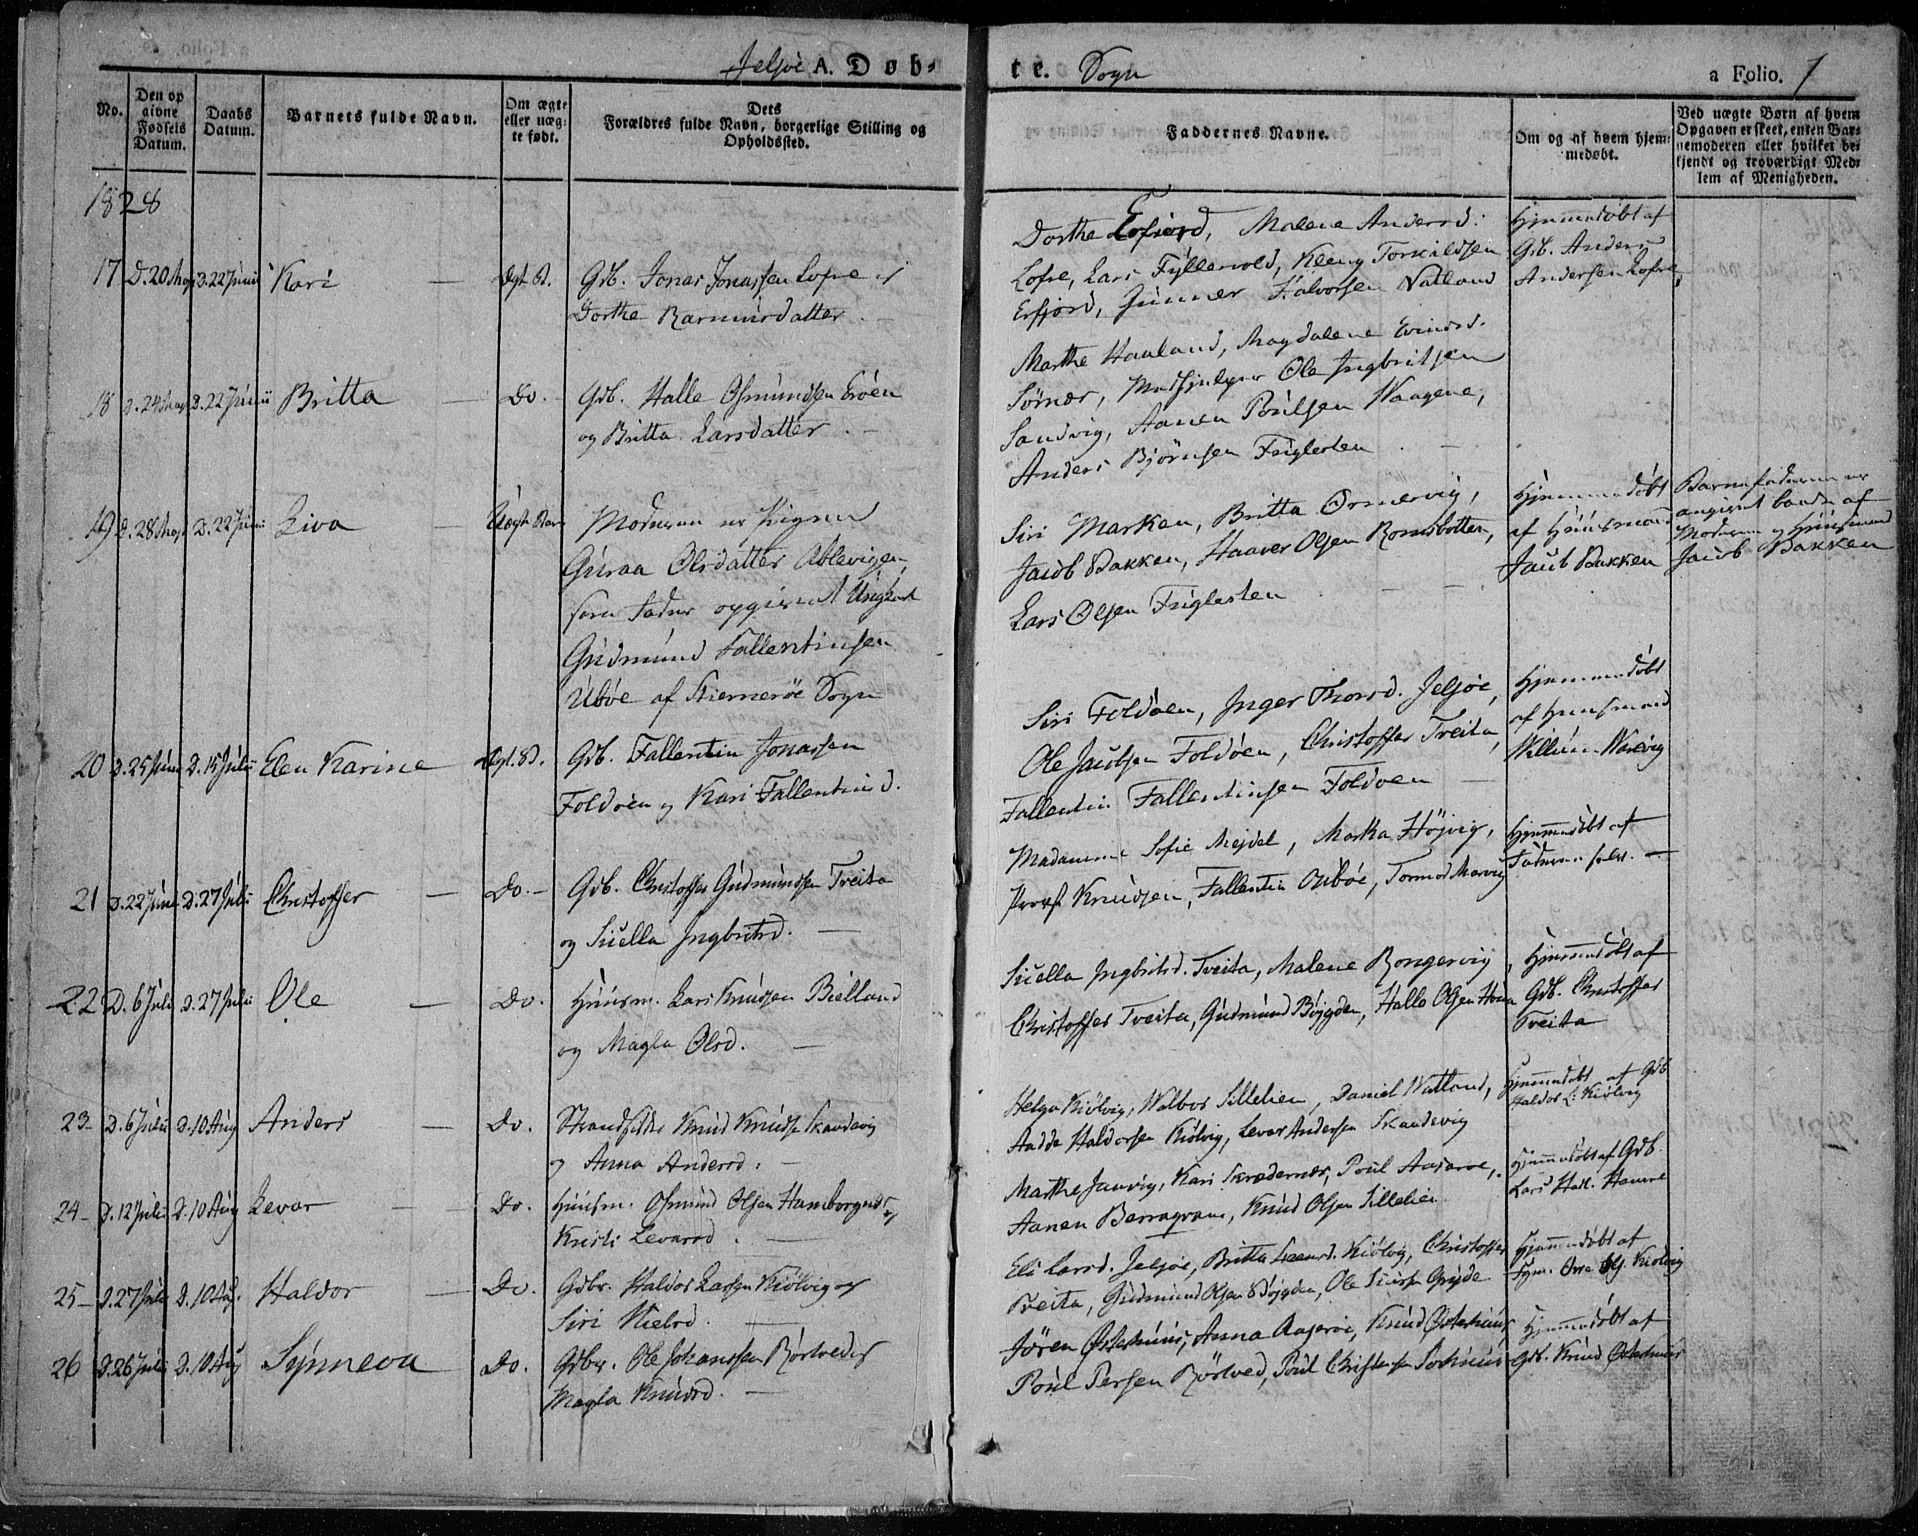 Jelsøe A. Døb-
te. Sogn
a Folio. 7
No.
Den op
givne
Fødsels
Datum.
Daabs
Datum.
Barnets fulde Navn.
Om ægte
eller uæg-
te født.
Dets
Forældres fulde Navn, borgerlige Stilling og
Opholdssted.
Faddernes Navne.
Om og af hvem hjem-
medøbt.
Ved uægte Børn af hvem
Opgaven er skeet, enten Bar-
nemoderen eller hvilket be-
kjendt og troværdigt Med-
lem af Menigheden.
1828
17 D. 20 D. 22 Juni Kari Ægt. B. Gdb. Jonas Jonassen Lofre og
Dorthe Rasmusdatter
Dorthe Erfiord, Malene Andersd:
Lofre, Lars Fyllesvold, Kleng Torkildsen
Erfjord, Gunner Halvorsen Natland
Hjemmedøbt af
Gdb. Anders
Andersen Lofre,
18 D. 24 D. 22 Junii Britta Do. Gdb. Halle Osmundsen Eröen
og Britta Larsdatter
Marthe Haaland, Magdalene Evindsd.
Sørnær, Medhjelper Ole Ingbritsen
Sandvig, Aanen Poulsen Waagene,
Anders Bjørnsen Fuglesten
19 D. 28 D. 22 Juni Liva Uægte Barn Moderen er Pigen
Guraa Olsdatter Ablevigen,
som Fader opgivet Ungkarl
Gudmund Fallentinsen
Uböe af Stiernerøe Sogn
Siri Marken, Britta Ormervig,
Jacob Bakken, Haaver Olsen Romsbotten,
Lars Olsen Fuglesten
Hjemmedøbt
af Huusmand
Jacob Bakken
Barnefaderen er
angivet baade af
Moderen og Huusmand
Jacob Bakken
20 D. 25 Juni D. 15 Julii Elen Karine Ægt. B. Gdb. Fallentin Jonassen
Foldøen og Kari Fallentinsd.
Siri Foldøen, Inger Thorsd. Jelsøe,
Ole Jacobsen Foldøen, Christoffer Treita,
Fallentin Fallentinsen Foldøen
Hjemmedøbt
af Huusmand
Willum Narevig
21 D. 22 Juni D. 27 Julii Christoffer Do. Gdb. Christoffer Gudmundsen Tveita
og Siiella Ingbritsd.
Madamme Sofie Mejdel, Marta Höjvig,
Provst Knudsen, Fallentin Oubøe, Tormod Marvig
Hjemmedøbt af
Faderen selv.
22 D. 6 Juli D. 27 Julii Ole Do. Huusm. Lars Knudsen Bielland
og Magla Olsd.
Siiella Ingbritsd. Tveita, Malene Bongervig,
Christoffer Tveita, Gudmund Bøjgden, Halle Olsen
Hjemmedøbt af
Gdb. Christoffer
Tveita
23 D. 6 Juli D. 10 Aug Anders Do. Strandsidder Knud Knudsen Skandevig
og Anna Andersd.
Helga Kiølvig, Walbor Lillelien, Daniel Watland,
Aadde Haldorsen Kiølvig, Levor Andersen Skandevig
Hjemmedøbt af Gdb
Haldor L. Kiølvig
24 D. 12 Julii D. 10 Aug Levor Do. Huusm. Osmund Olsen Hamborgnes og
Kristi Levorsd.
Marthe Janvig, Kari Skredernær, Poul Aaserøe,
Aanen Berragram, Knud Olsen Lillelien
Hjemmedøbt af Gdb.
Lars Hall. Hamre
25 D. 27 Juli D. 10 Aug. Haldor Do. Gdbr. Haldor Larsen Kiølvig og
Siri Nielsd.
Eli Larsd. Jelsøe, Britta Svensd. Kiølvig, Christoffer
Tveita, Gudmund Olsen Bøjgden, Ole
Hjemmedøbt af
Ole Kiølvig
26 D. 26 Juli D. 10 Aug Synneva Do. Gdbr. Ole Johanssen Rørtved og
Magla Knudsd.
Jören Østerhuus, Anna Aaserøe, Knud Østerhuus
Poul Persen Rörtved, Poul Christensen
Hjemmedøbt af
Gdb. Knud Østerhuus